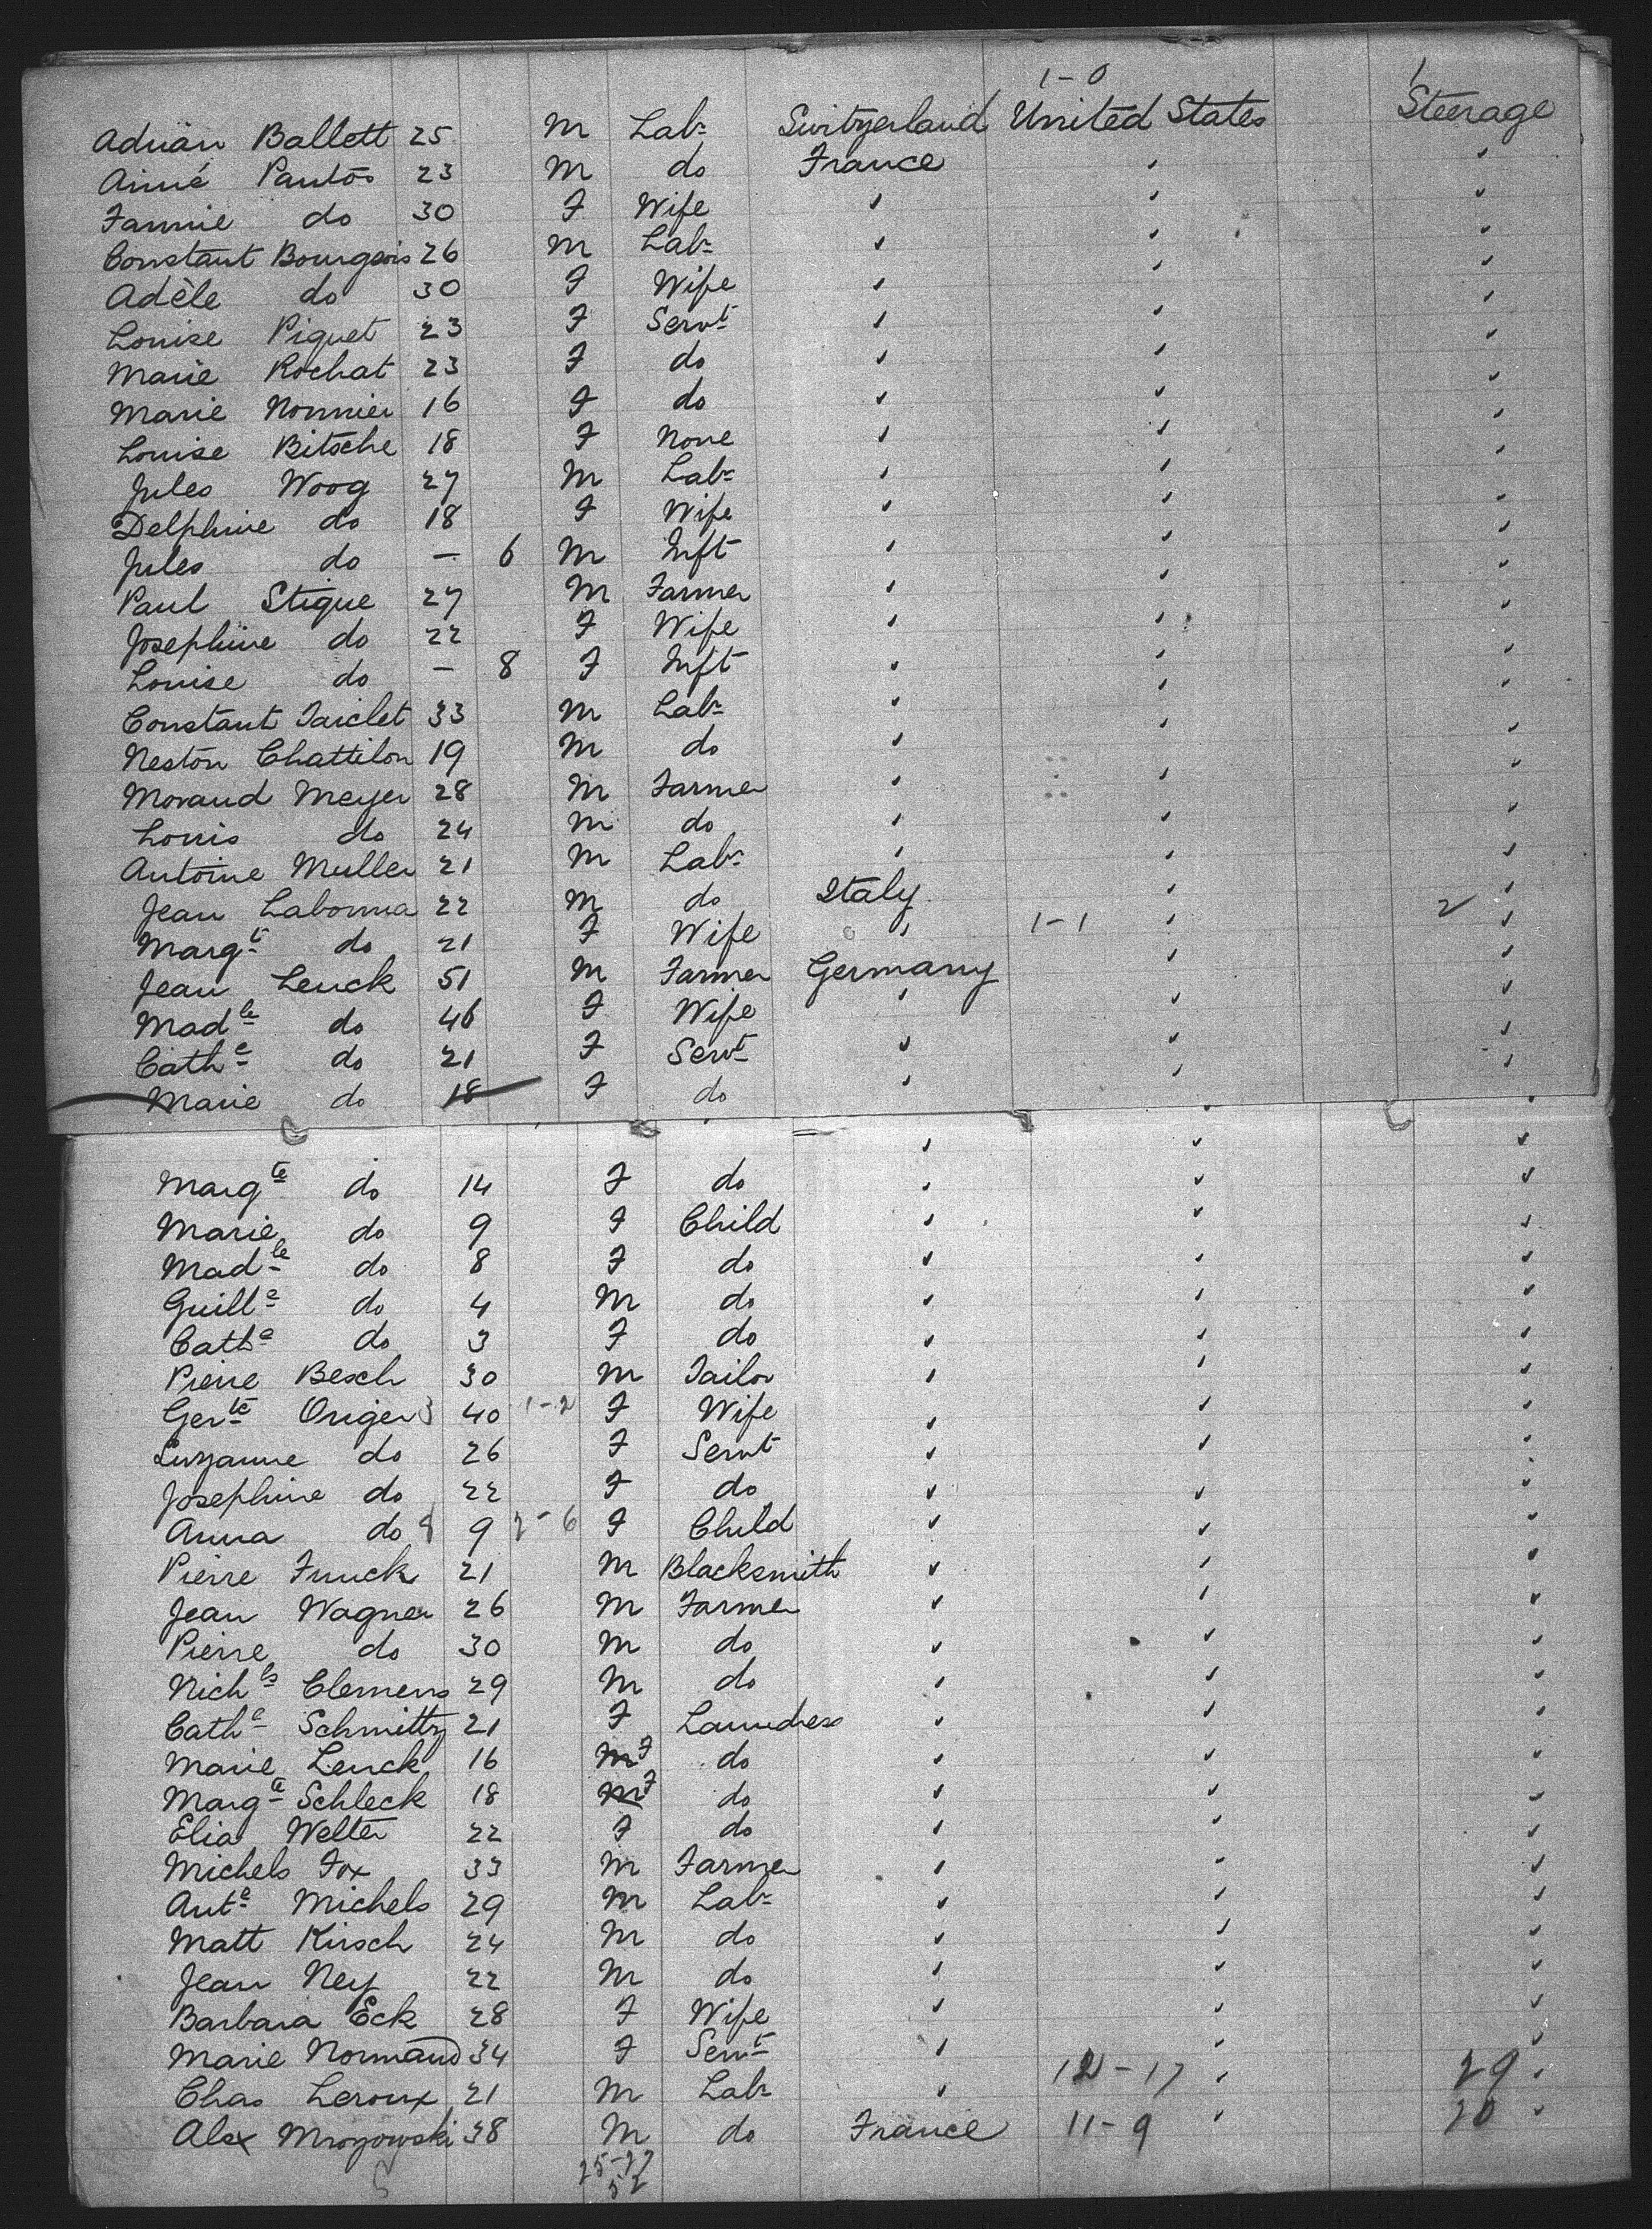 1-0 1
Adrian Ballett 25 M Labr Switzerland United States Steerage
Aimé Pantos 23 M do France " "
Fannie do 30 F Wife " " "
Constant Bourgeois 26 M Labr " " "
Adèle do 30 F Wife " " "
Louise Piguet 23 F Servt " " "
Marie Rochat 23 F do " " "
Marie Nonnier 16 F do " " "
Louise Bitsche 18 F None " " "
Jules Woog 27 M Labr " " "
Delphine do 18 F Wife " " "
Jules do — 6 M Inft " " "
Paul Stique 27 M Farmer " " "
Josephine do 22 F Wife " " "
Louise do — 8 F Inft " " "
Constant Taiclet 33 M Labr " " "
Neston Chattilon 19 M do " " "
Morand Meyer 28 M Farmer " " "
Louis do 24 M do " " "
Antoine Muller 21 M Labr " " "
Jean Labonna 22 M do Italy " "
Margte do 21 F Wife " 1-1 " 2 "
Jean Lenck 51 M Farmer Germany " "
Madle do 46 F Wife " " "
Cathe do 21 F Servt " " "
Marie do 18 F do " " "
Margte do 14 F do " " "
Marie do 9 F Child " " "
Madle do 8 F do " " "
Guille do 4 M do " " "
Cathe do 3 F do " " "
Pierre Besch 30 M Tailor " " "
Gerte Origer 3 40 1-2 F Wife " " "
Suzanne do 26 F Servt " " "
Josephine do 22 F do " " "
Anna do 9 F Child " " "
Pierre Funck 21 M Blacksmith " " "
Jean Wagner 26 M Farmer " " "
Pierre do 30 M do " " "
Nichls Clemens 29 M do " " "
Cathe Schmittz 21 F Laundress " " "
Marie Lenck 16 M F do " " "
Margte Schleck 18 M F do " " "
Elia Welter 22 F do " " "
Michels Fox 33 M Farmer " " "
Ante Michels 29 M Labr " " "
Matt Kirsch 24 M do " " "
Jean Ney 22 M do " " "
Barbara Eck 28 F Wife " " "
Marie Normand 34 F Servt " " "
Chas Leroux 21 M Labr " 12-17 " 29 "
Alex Mrozowski 38 M do France 11-9 " 20 "
25-27
52